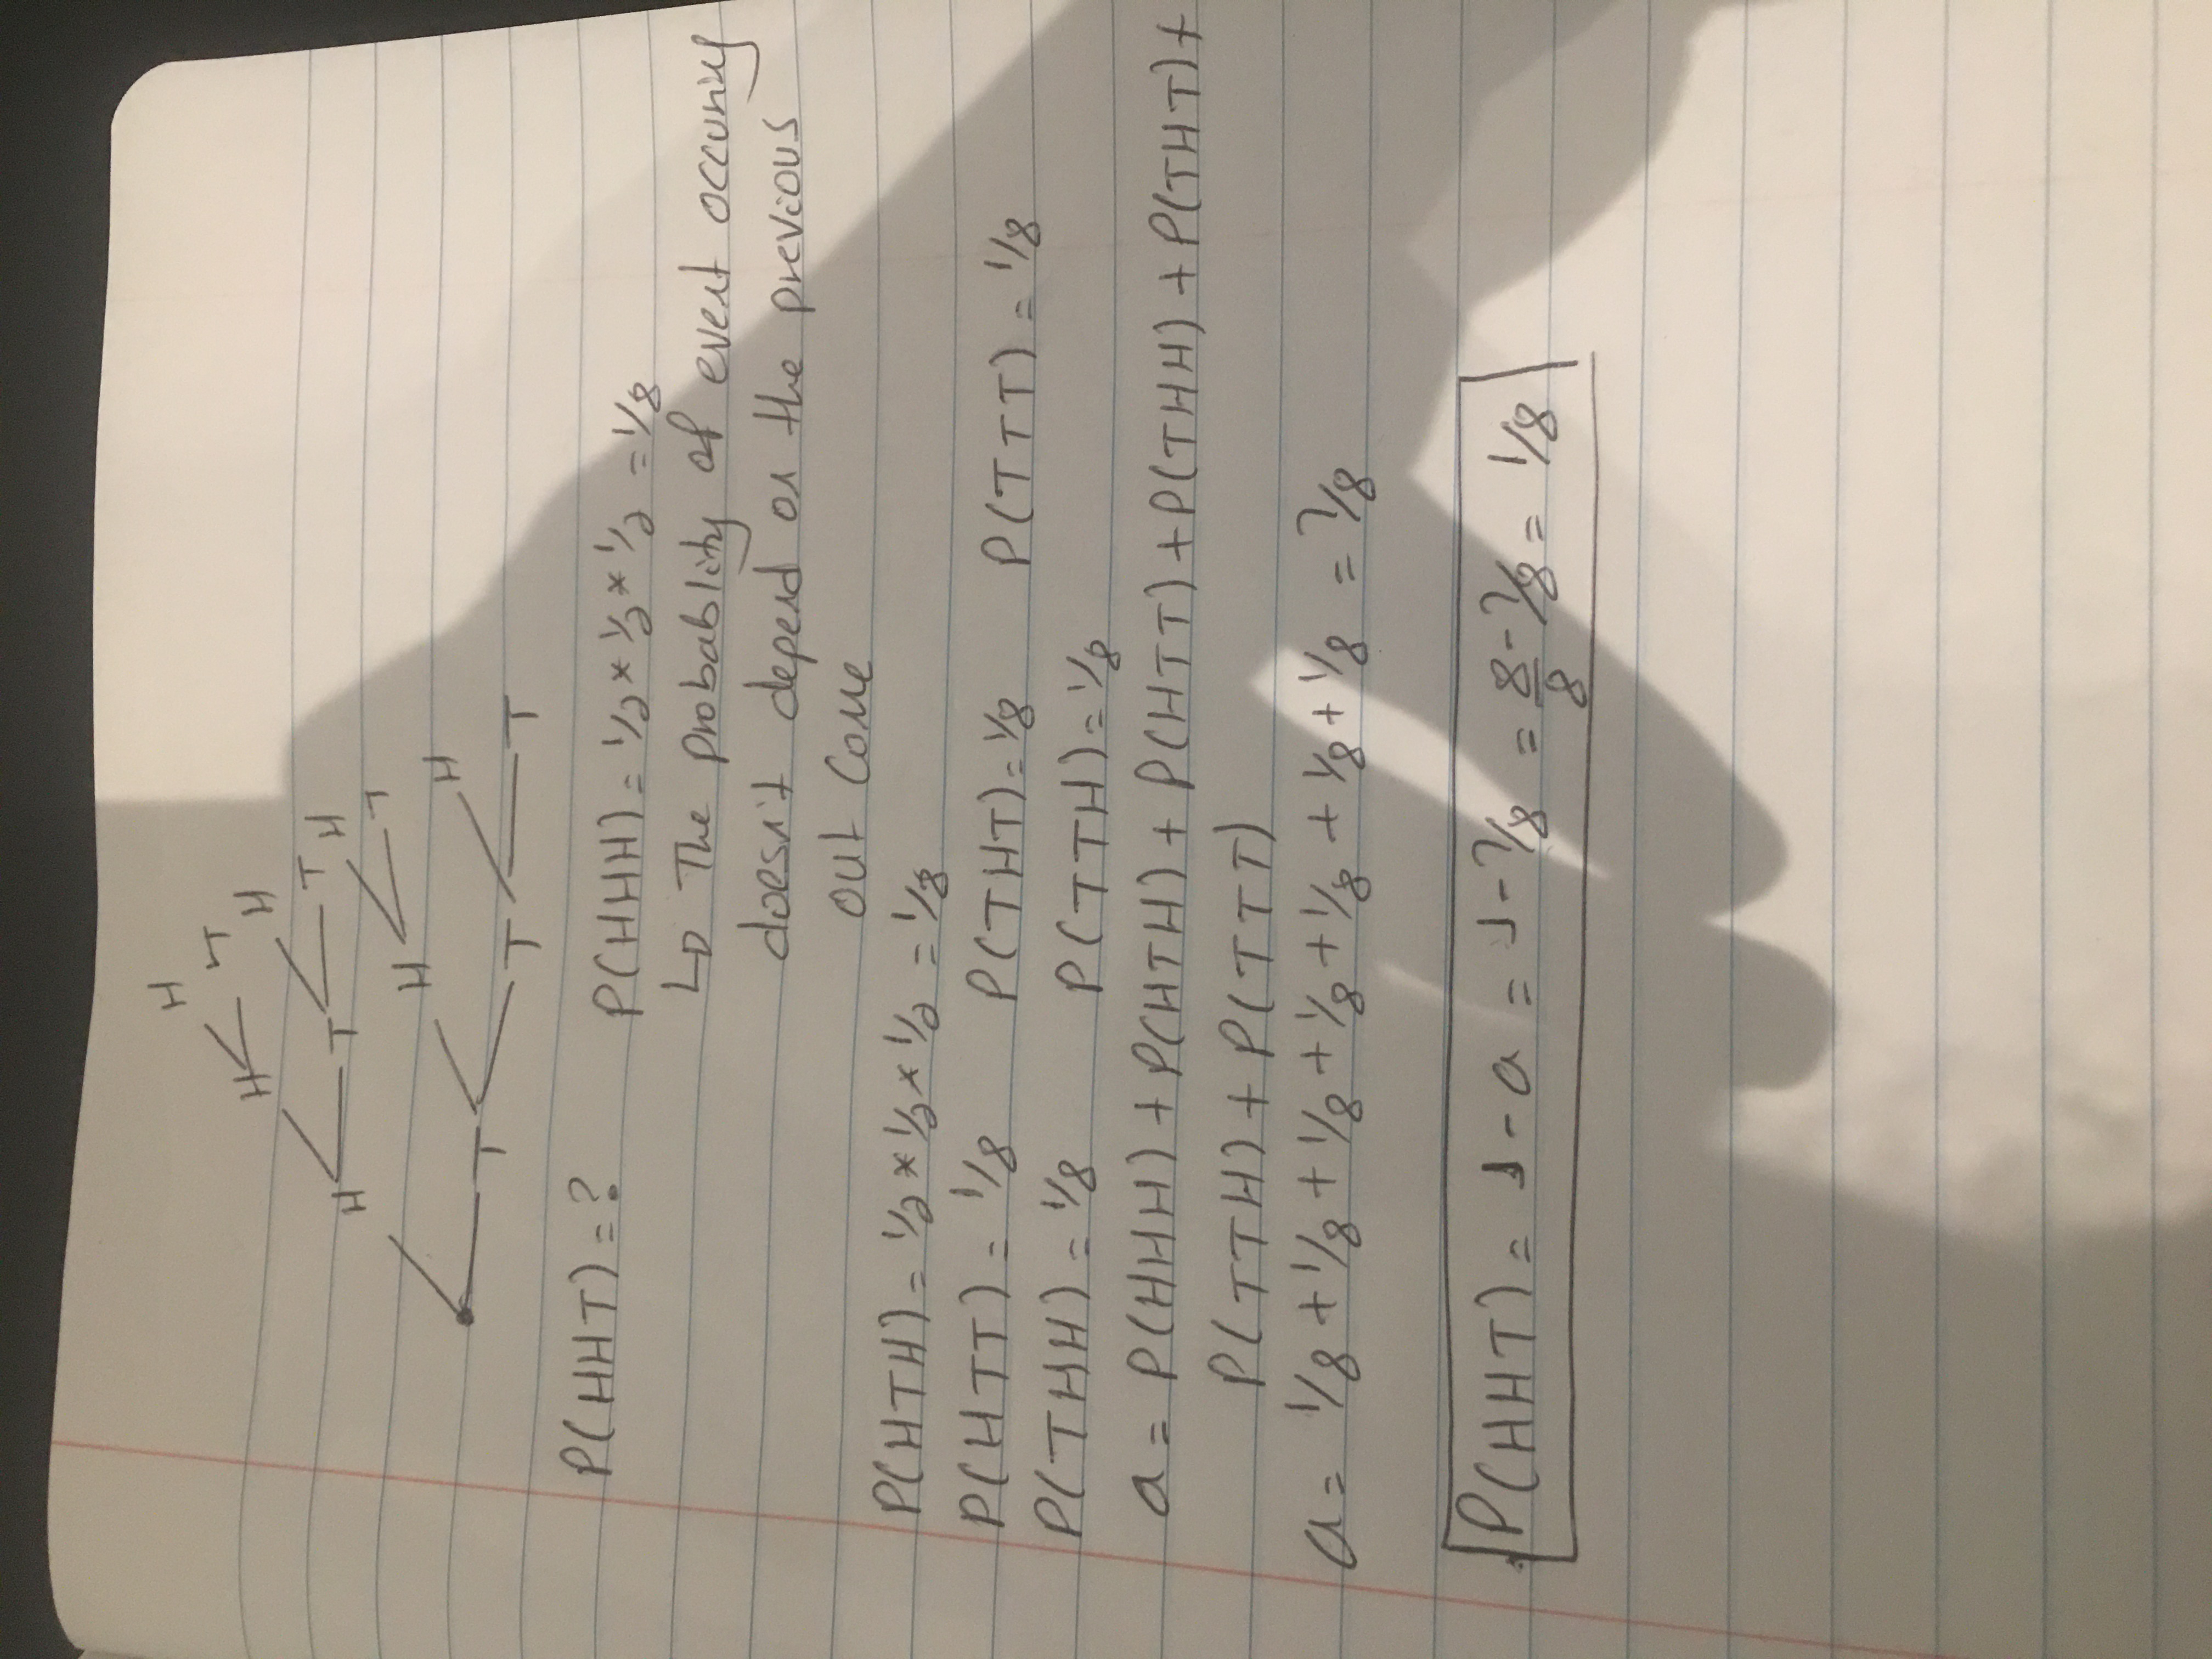 H
H T
H
H T T
H
H T
H
T T T
P(HHT) = ? P(HHH) = 1/2 * 1/2 * 1/2 = 1/8
↳ The probablity of event occuring
doesn't depend on the previous
out come
P(HTH) = 1/2 * 1/2 * 1/2 = 1/8
P(HTT) = 1/8 P(THT) = 1/8 P(TTT) = 1/8
P(THH) = 1/8 P(TTH) = 1/8
a = P(HHH) + P(HTH) + P(HTT) + P(THH) + P(THT) +
P(TTH) + P(TTT)
a = 1/8 + 1/8 + 1/8 + 1/8 + 1/8 + 1/8 + 1/8 = 7/8
P(HHT) = 1 - a = 1 - 7/8 = 8/8 - 7/8 = 1/8